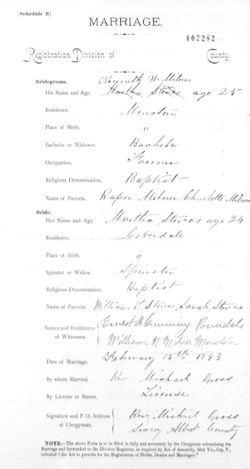 [Schedule B]
MARRIAGE.
002282
Registration Division of County.
Bridegrooms. Kenneth W. Milner
His Name and Age. Martha Steves age 25
Residence. Moncton
Place of Birth. "
Bachelor or Widower. Bachelor
Occupation. Farmer
Religious Denomination. Baptist
Name of Parents. Milner Charlotte Milner
Bride.
Her Name and Age. Martha Steves age 24
Residence. Coverdale
Place of Birth. "
Spinster or Widow. Spinster
Religious Denomination. Baptist
Name of Parents. William Steves Sarah Steves
Names and Residences of Witnesses. Ernest Coverdale
William Moncton
Date of Marriage. February 15th 1893
By whom Married. Rev Michael Gross
By License or Banns. License
Signature and P. O. Address of Clergyman. Rev. Michael Gross
Albert County
NOTE.—The above Form is to be filled in fully and accurately by the Clergyman solemnizing the
Marriage and forwarded to the Division Registrar, as required by Act of Assembly, 50th Vic., Cap. V.,
intituled "An Act to provide for the Registration of Births, Deaths and Marriages."